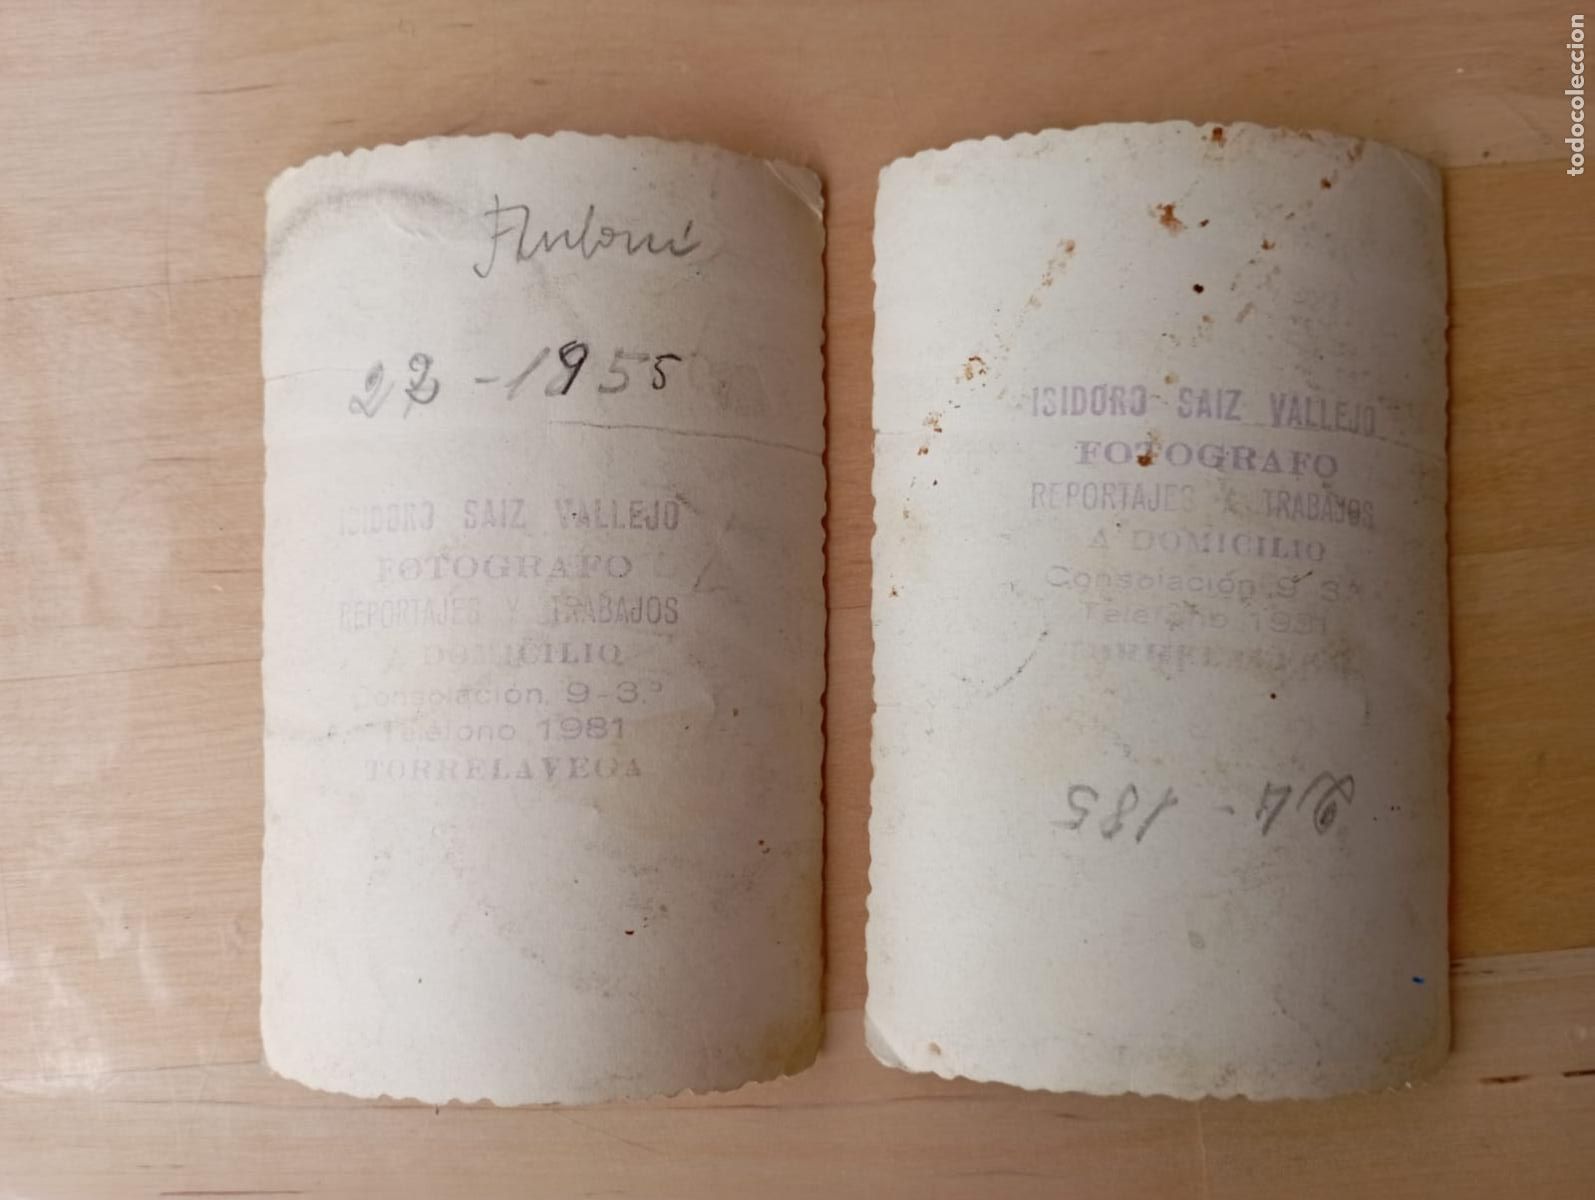 22-1955
ISIDORO SAIZ VALLEJO
FOTOGRAFO
REPORTAJES Y TRABAJOS
A DOMICILIO
Consolación, 9-3.º
Teléfono 1981
TORRELAVEGA
ISIDORO SAIZ VALLEJO
FOTOGRAFO
REPORTAJES Y TRABAJOS
A DOMICILIO
Consolación 9 3.º
Teléfono 1981
TORRELAVEGA
24-185
todocoleccion